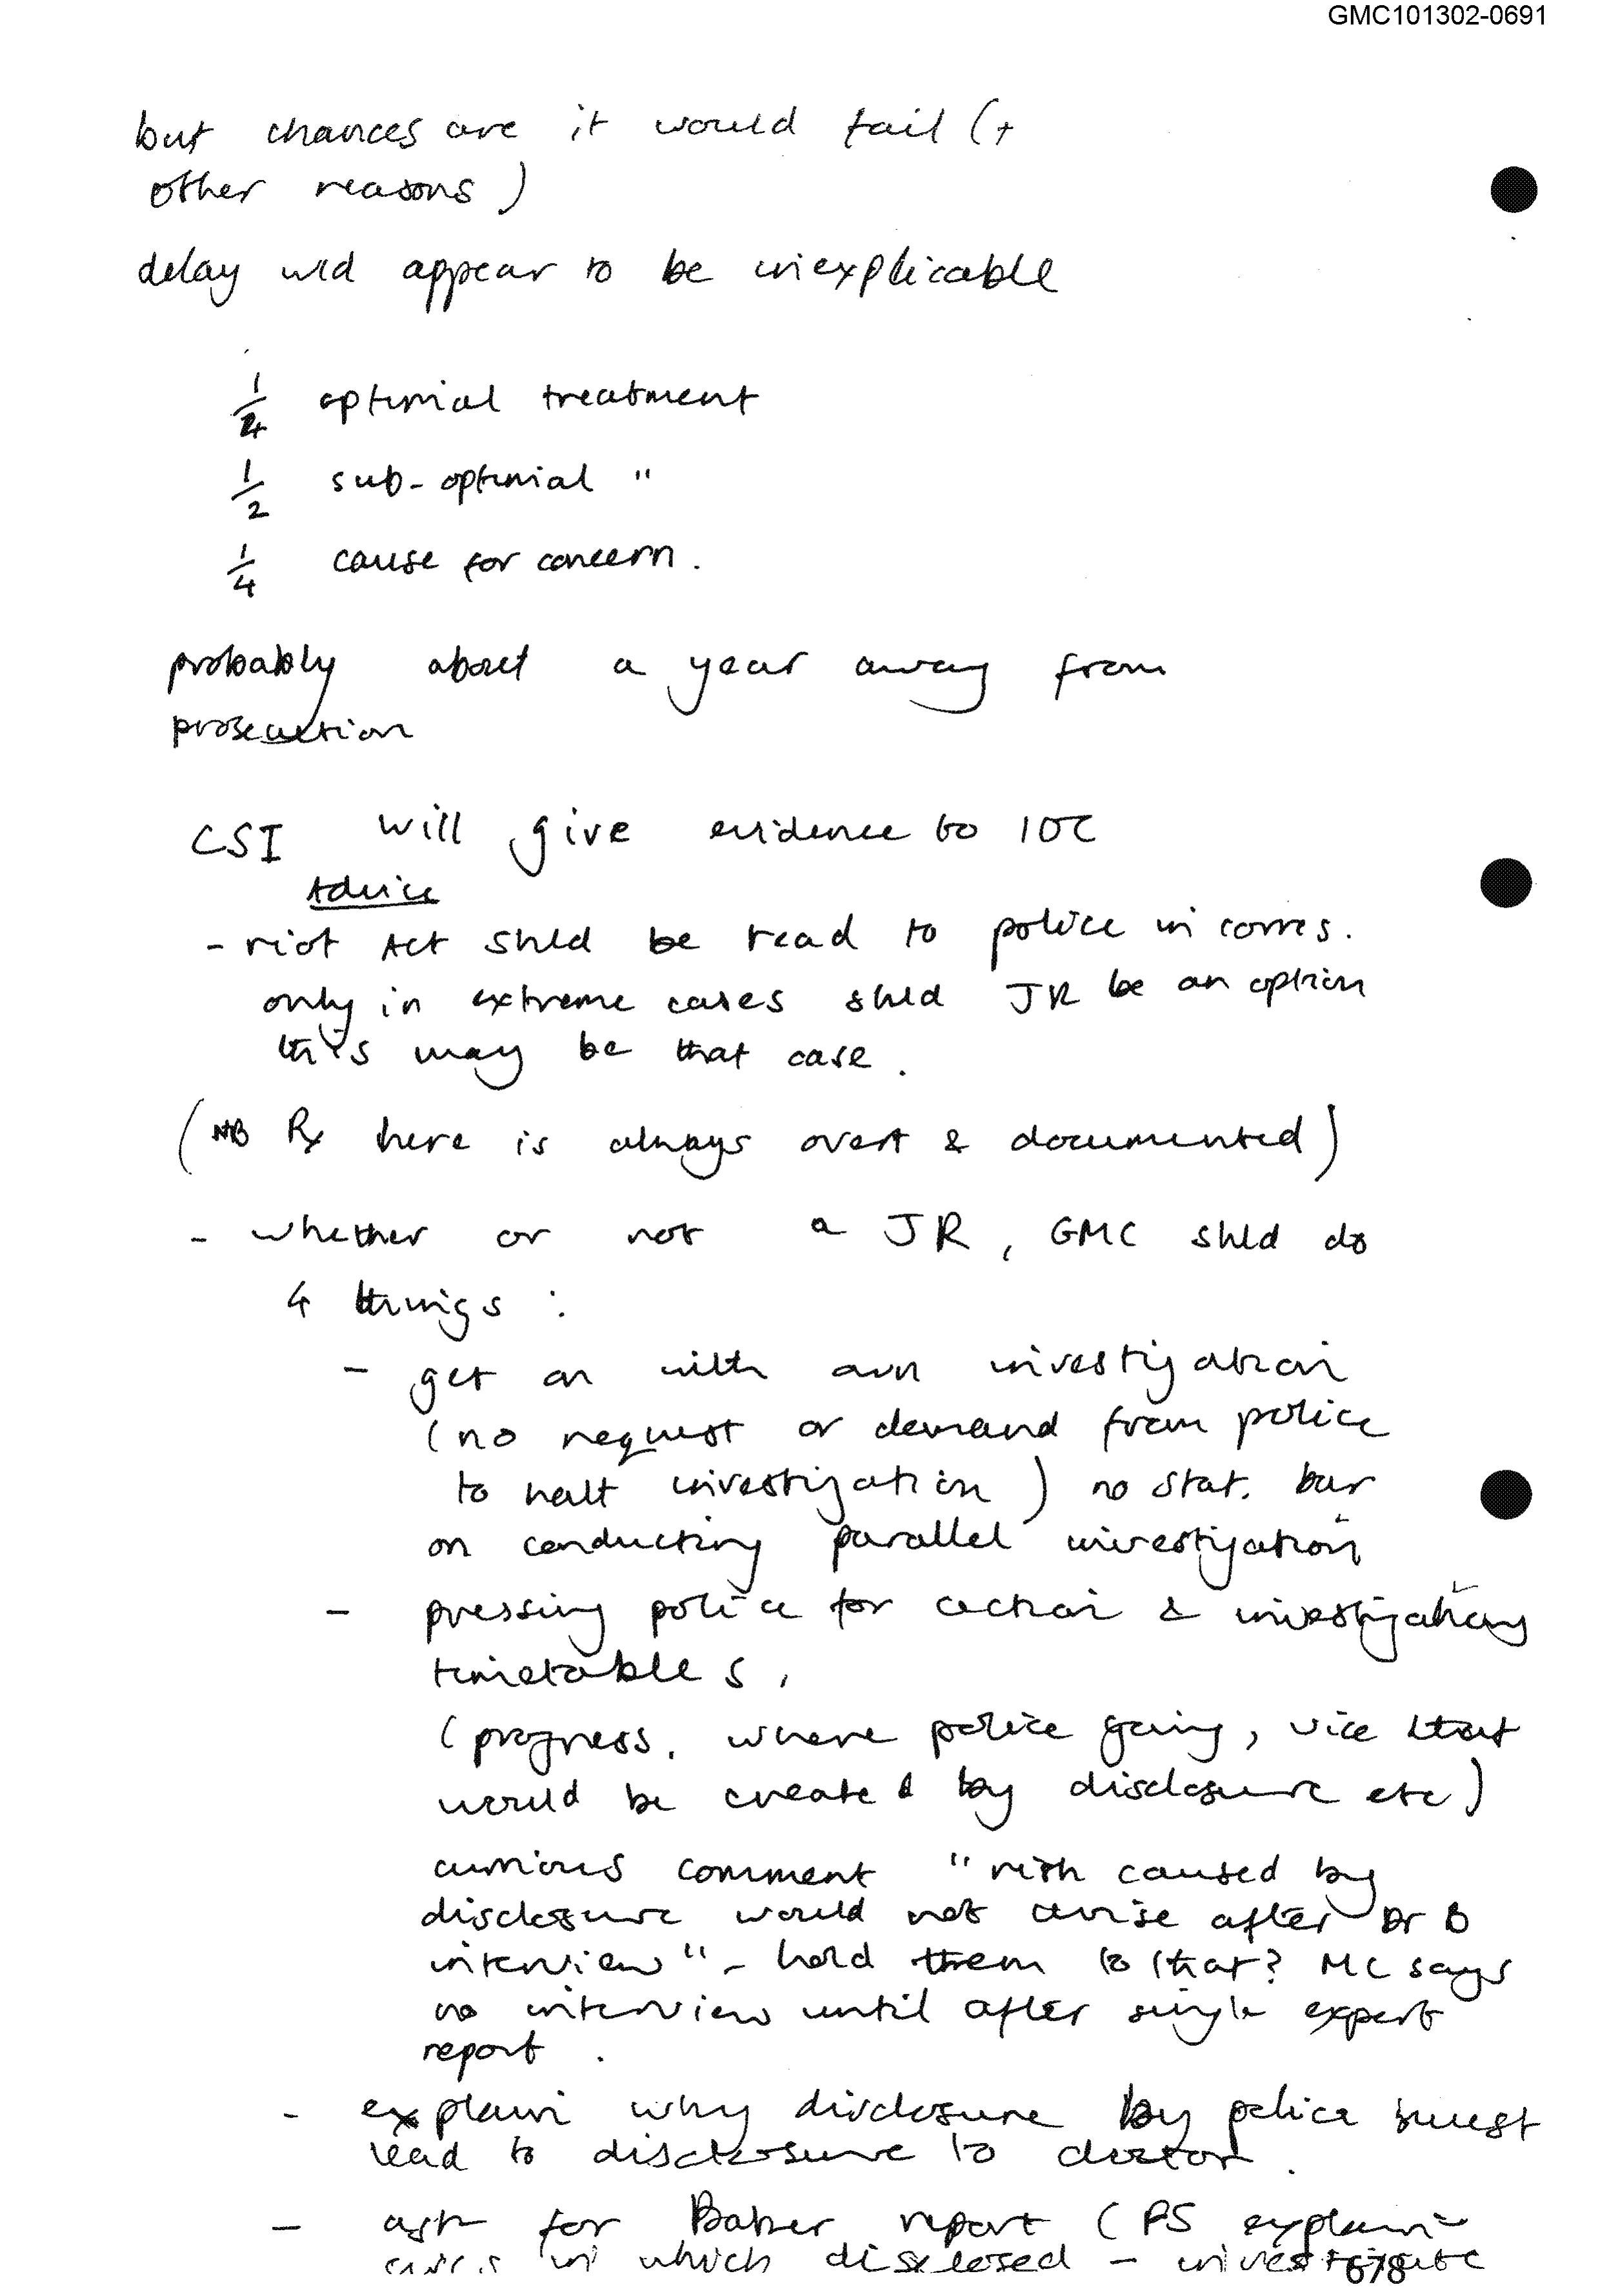 GMC101302-0691
but chances are it would fail (+
other reasons)
delay wld appear to be inexplicable
1/4 optimal treatment
1/2 sub-optimal "
1/4 cause for concern.
probably about a year away from
prosecution
CSI will give evidence to IOC
Advice
- riot Act shld be read to police in corres.
only in extreme cases shld JR be an option
this may be that case.
(NB Rx here is always overt & documented)
- whether or not a JR, GMC shld do
4 things:
- get on with own investigation
(no request or demand from police
to halt investigation) no stat. bar
on conducting parallel investigation
- pressing police for action & investigatory
timetables,
(progress, where police going, vice that
would be created by disclosure etc)
curious comment "risk caused by
disclosure would not arise after Dr B
interview" - hold them to that? MC says
no interview until after single expert
report.
- explain why disclosure by police must
lead to disclosure to doctor.
- ask for Baker report (PS explain
in which disclosed - investigate
678